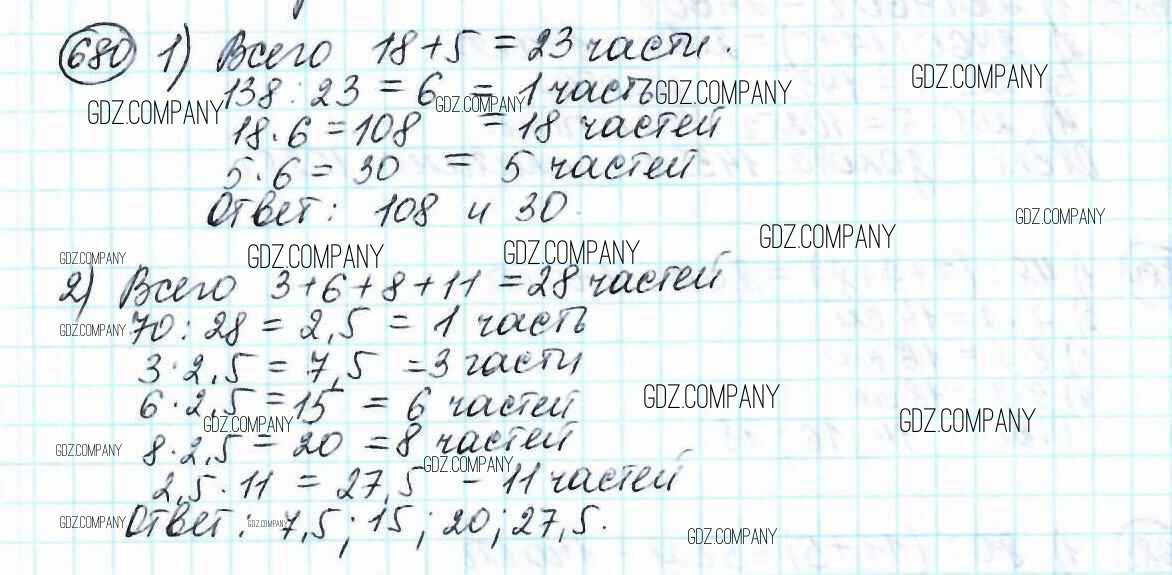 680 1) Всего 18+5 = 23 части.
138 : 23 = 6 = 1 часть
GDZ.COMPANY GDZ.COMPANY GDZ.COMPANY GDZ.COMPANY
18·6 = 108 = 18 частей
5·6 = 30 = 5 частей
Ответ: 108 и 30.
GDZ.COMPANY
GDZ.COMPANY GDZ.COMPANY GDZ.COMPANY GDZ.COMPANY
2) Всего 3+6+8+11 = 28 частей
GDZ.COMPANY 70 : 28 = 2,5 = 1 часть
3·2,5 = 7,5 = 3 части
GDZ.COMPANY
6·2,5 = 15 = 6 частей
GDZ.COMPANY GDZ.COMPANY
GDZ.COMPANY 8·2,5 = 20 = 8 частей
GDZ.COMPANY
2,5·11 = 27,5 - 11 частей
GDZ.COMPANY GDZ.COMPANY GDZ.COMPANY
Ответ: 7,5; 15; 20; 27,5.